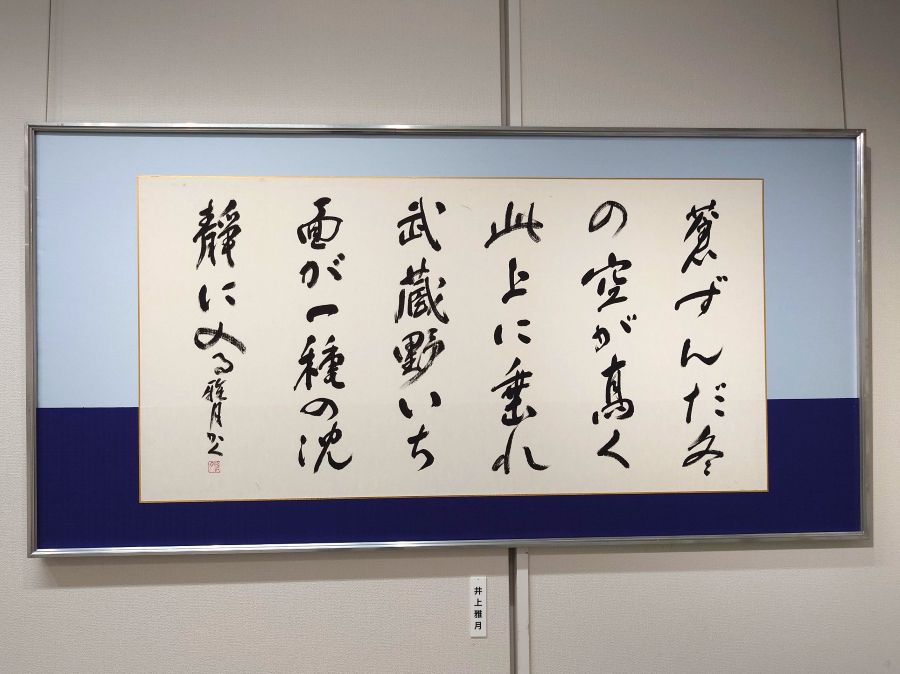 蒼ずんだ冬
の空が高く
此上に垂れ
武蔵野いち
面が一種の沈
静に入る 雅月かく
井上雅月